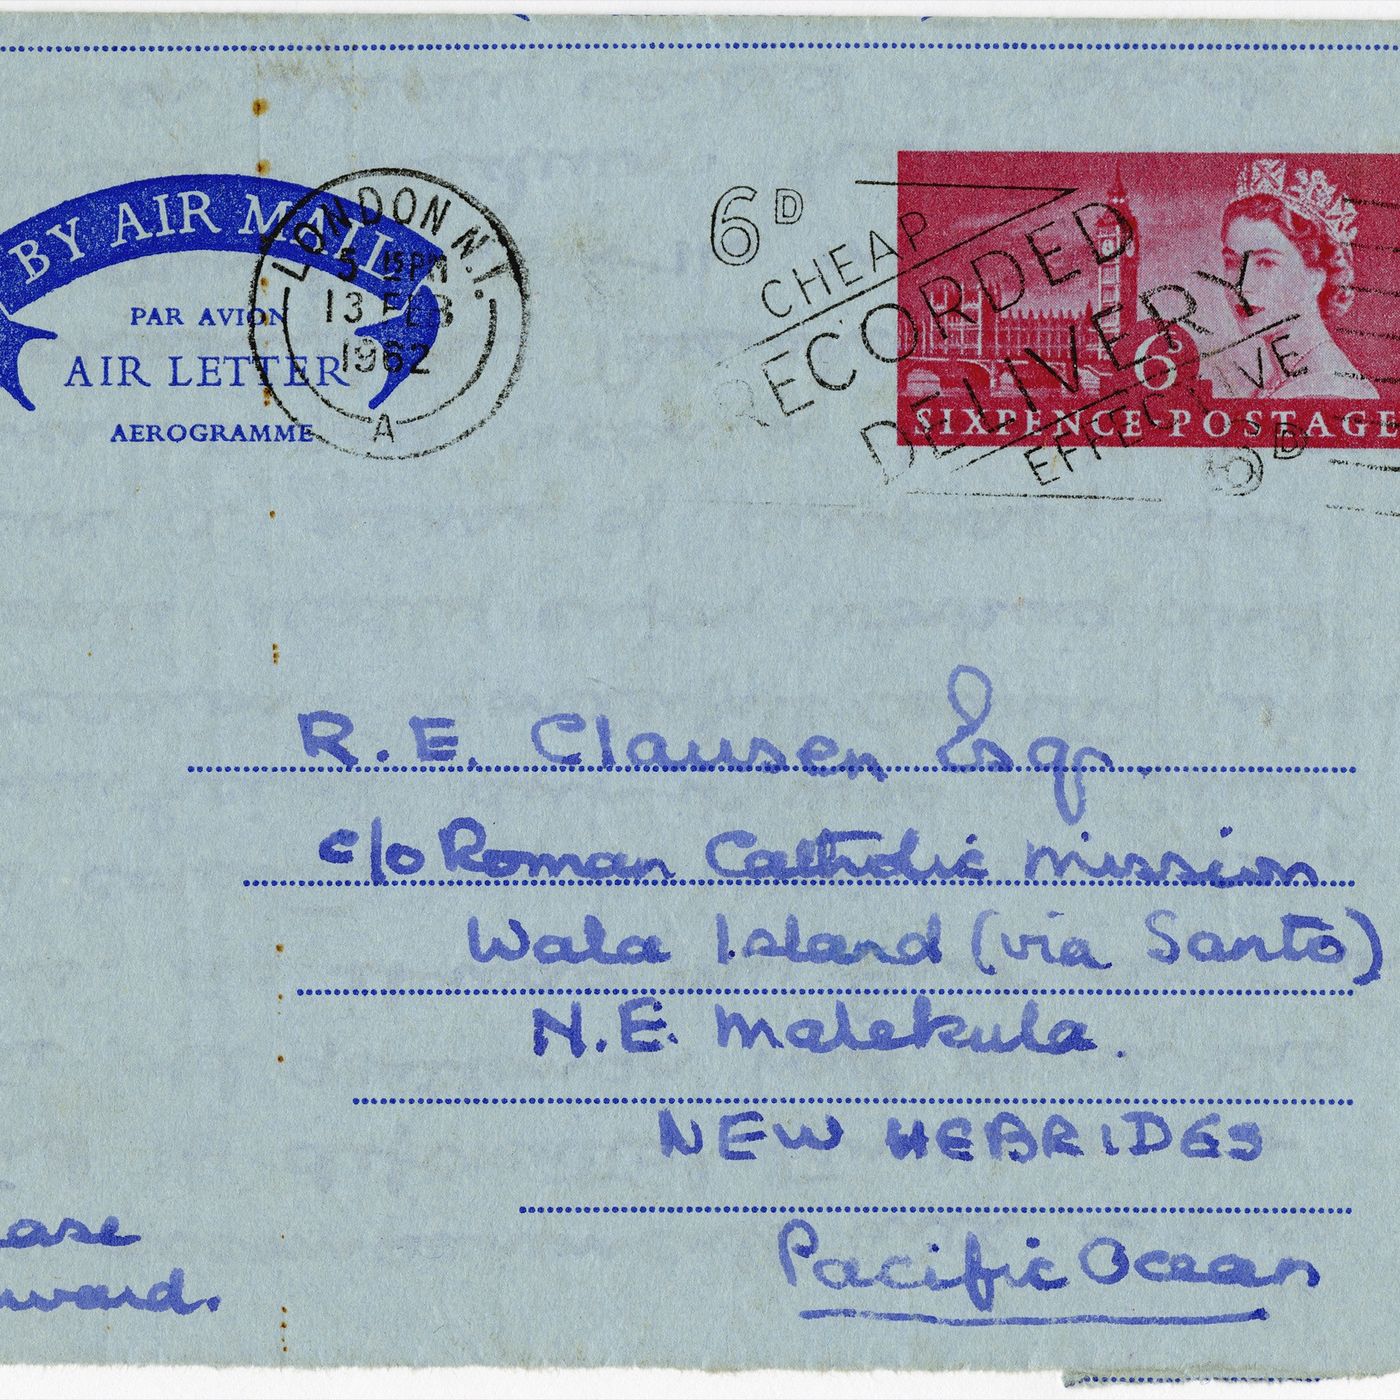 BY AIR MAIL
PAR AVION
AIR LETTER
AEROGRAMME
LONDON N.1.
5 15PM
13 FEB
1962
A
6D
CHEAP
RECORDED
DELIVERY
EFFECTIVE
6D
6D
SIXPENCE POSTAGE
R. E. Clausen Esqr.
c/o Roman Catholic Mission
Wala Island (via Santo)
N.E. Malekula.
NEW HEBRIDES
Pacific Ocean
ease
ward.